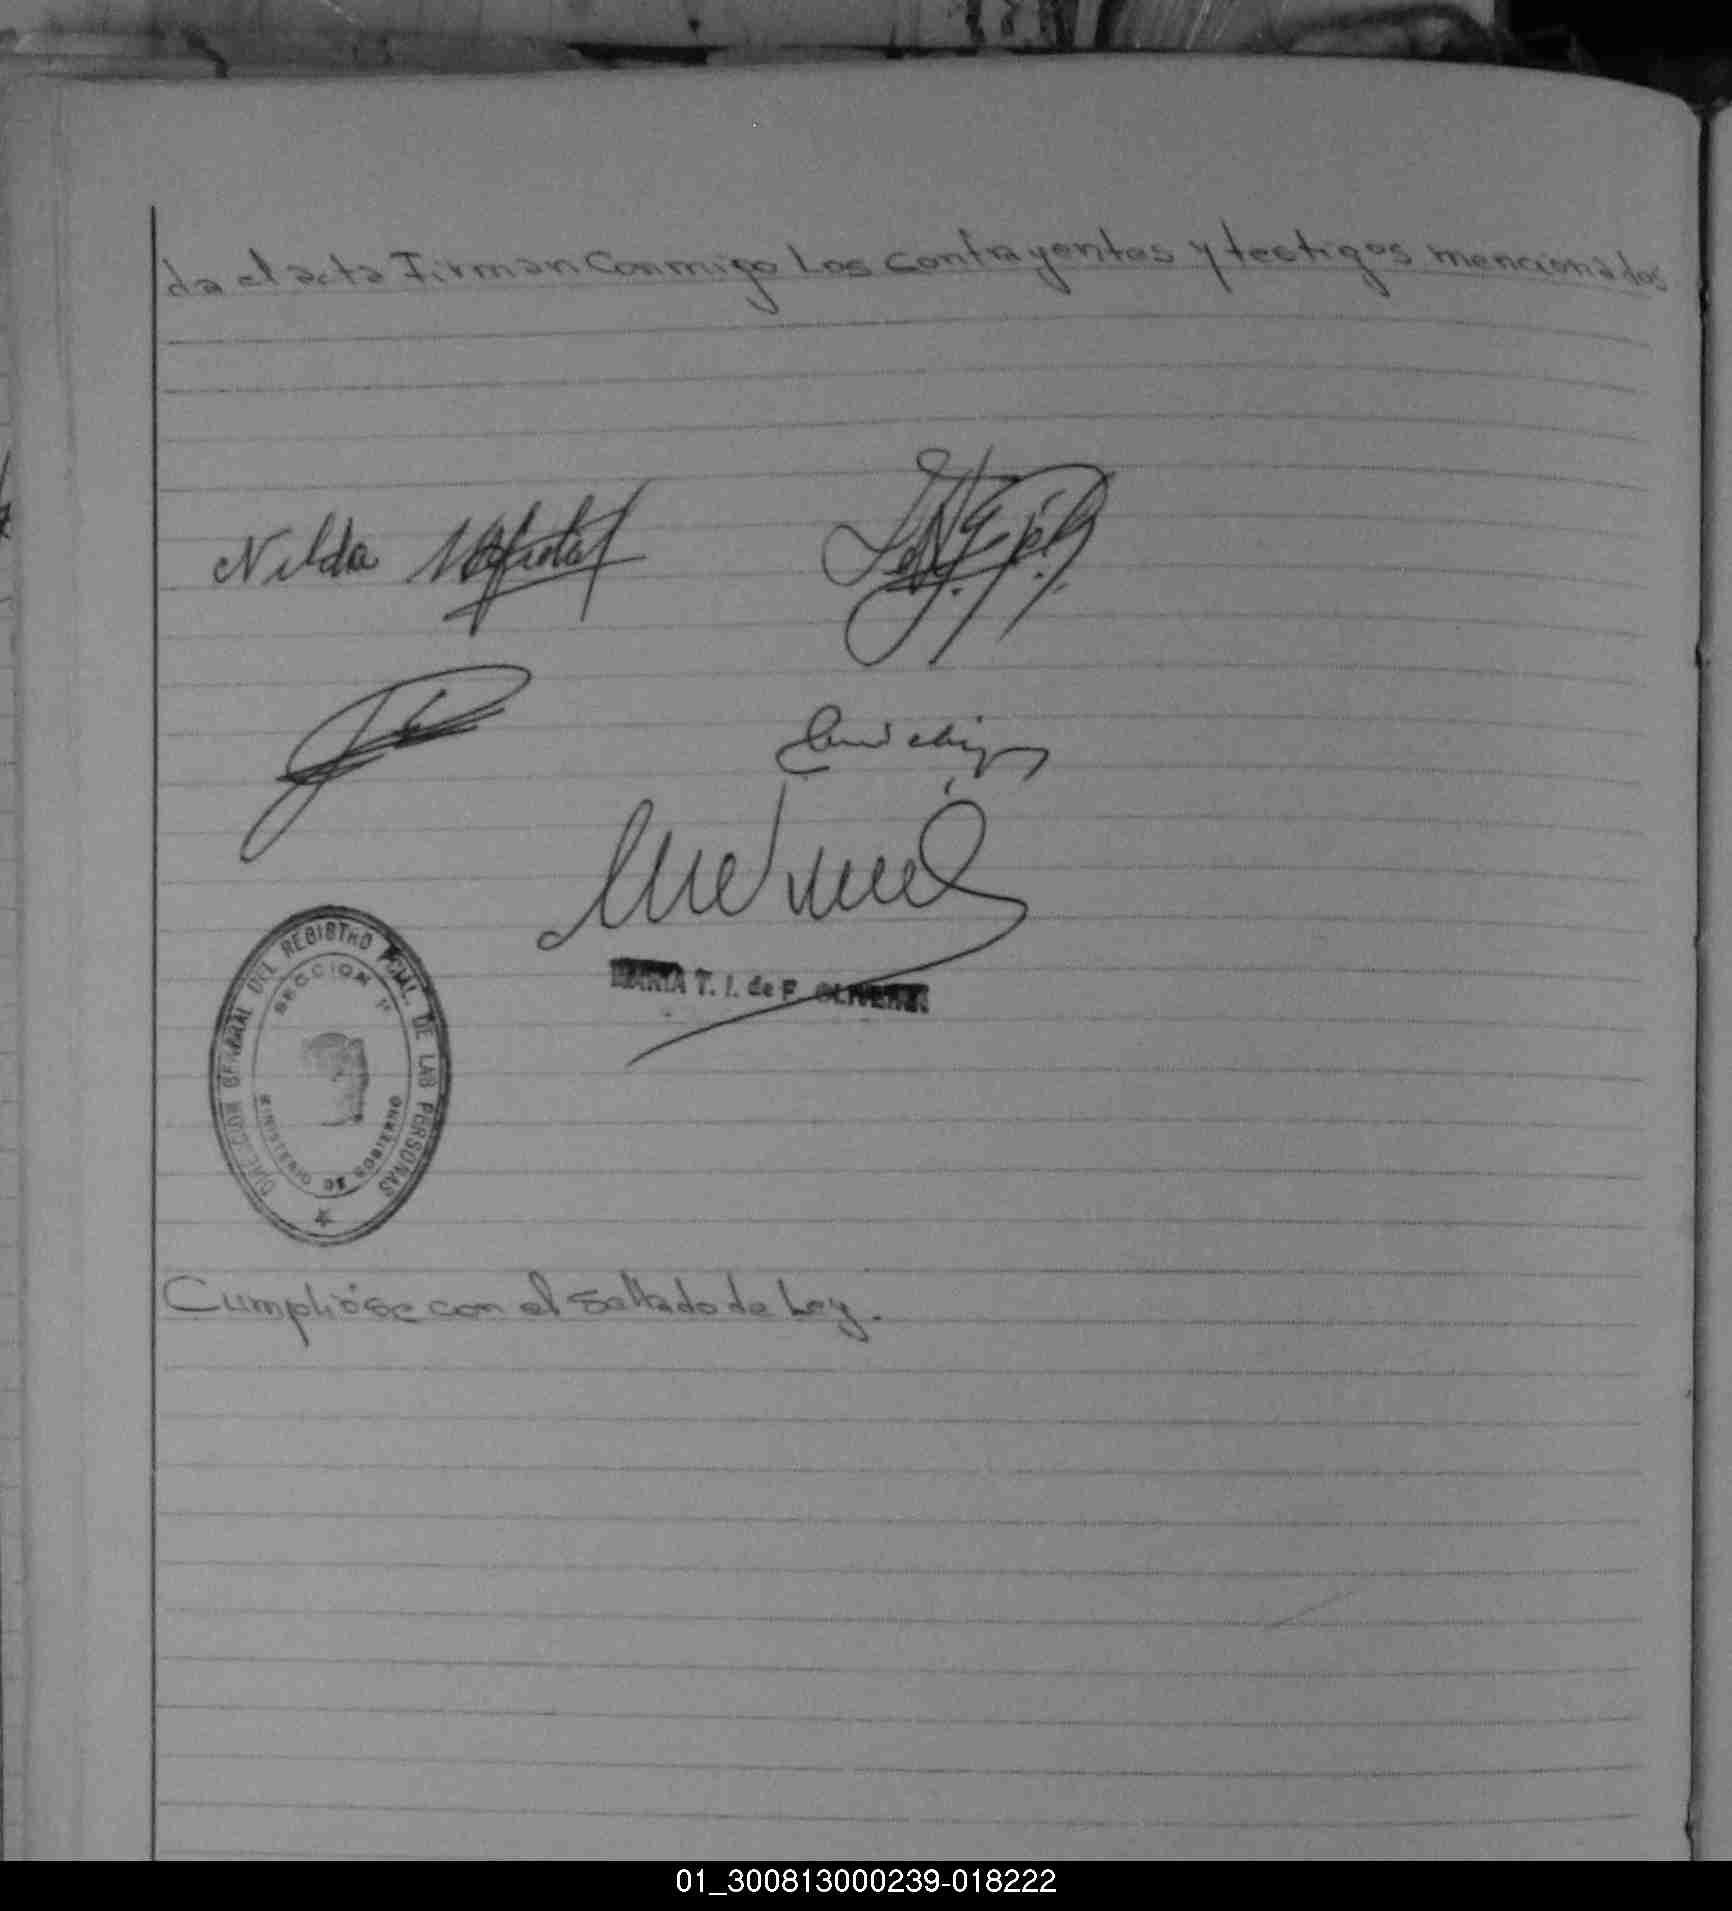 da el acta Firman Conmigo Los contrayentes y testigos mencionados
Nilda
MARIA T. I. de F. OLIVEIRA
DIRECCION GENERAL DEL REGISTRO PCIAL. DE LAS PERSONAS
SECCION 1ª
MINISTERIO DE GOBIERNO
Cumplióse con el sellado de Ley.
01_300813000239-018222